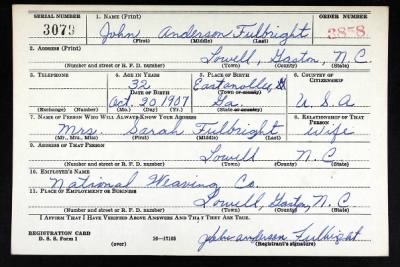 SERIAL NUMBER 1. NAME (Print) ORDER NUMBER
3079 John Anderson Fulbright 3878
(First) (Middle) (Last)
2. ADDRESS (Print)
Lowell, Gaston, N.C.
(Number and street or R. F. D. number) (Town) (County) (State)
3. TELEPHONE 4. AGE IN YEARS 5. PLACE OF BIRTH 6. COUNTRY OF CITIZENSHIP
32 Eastanollee, Ga
DATE OF BIRTH (Town or county)
Oct. 30 1907 Ga. U.S.A
(Exchange) (Number) (Mo.) (Day) (Yr.) (State or country)
7. NAME OF PERSON WHO WILL ALWAYS KNOW YOUR ADDRESS 8. RELATIONSHIP OF THAT PERSON
Mrs. Sarah Fulbright Wife
(Mr., Mrs., Miss) (First) (Middle) (Last)
9. ADDRESS OF THAT PERSON
Lowell N.C
(Number and street or R. F. D. number) (Town) (County) (State)
10. EMPLOYER'S NAME
National Weaving Co.
11. PLACE OF EMPLOYMENT OR BUSINESS
Lowell, Gaston, N.C.
(Number and street or R. F. D. number) (Town) (County) (State)
I AFFIRM THAT I HAVE VERIFIED ABOVE ANSWERS AND THAT THEY ARE TRUE.
REGISTRATION CARD
D. S. S. Form 1 (over) 16-17105 John anderson Fulbright
(Registrant's signature)